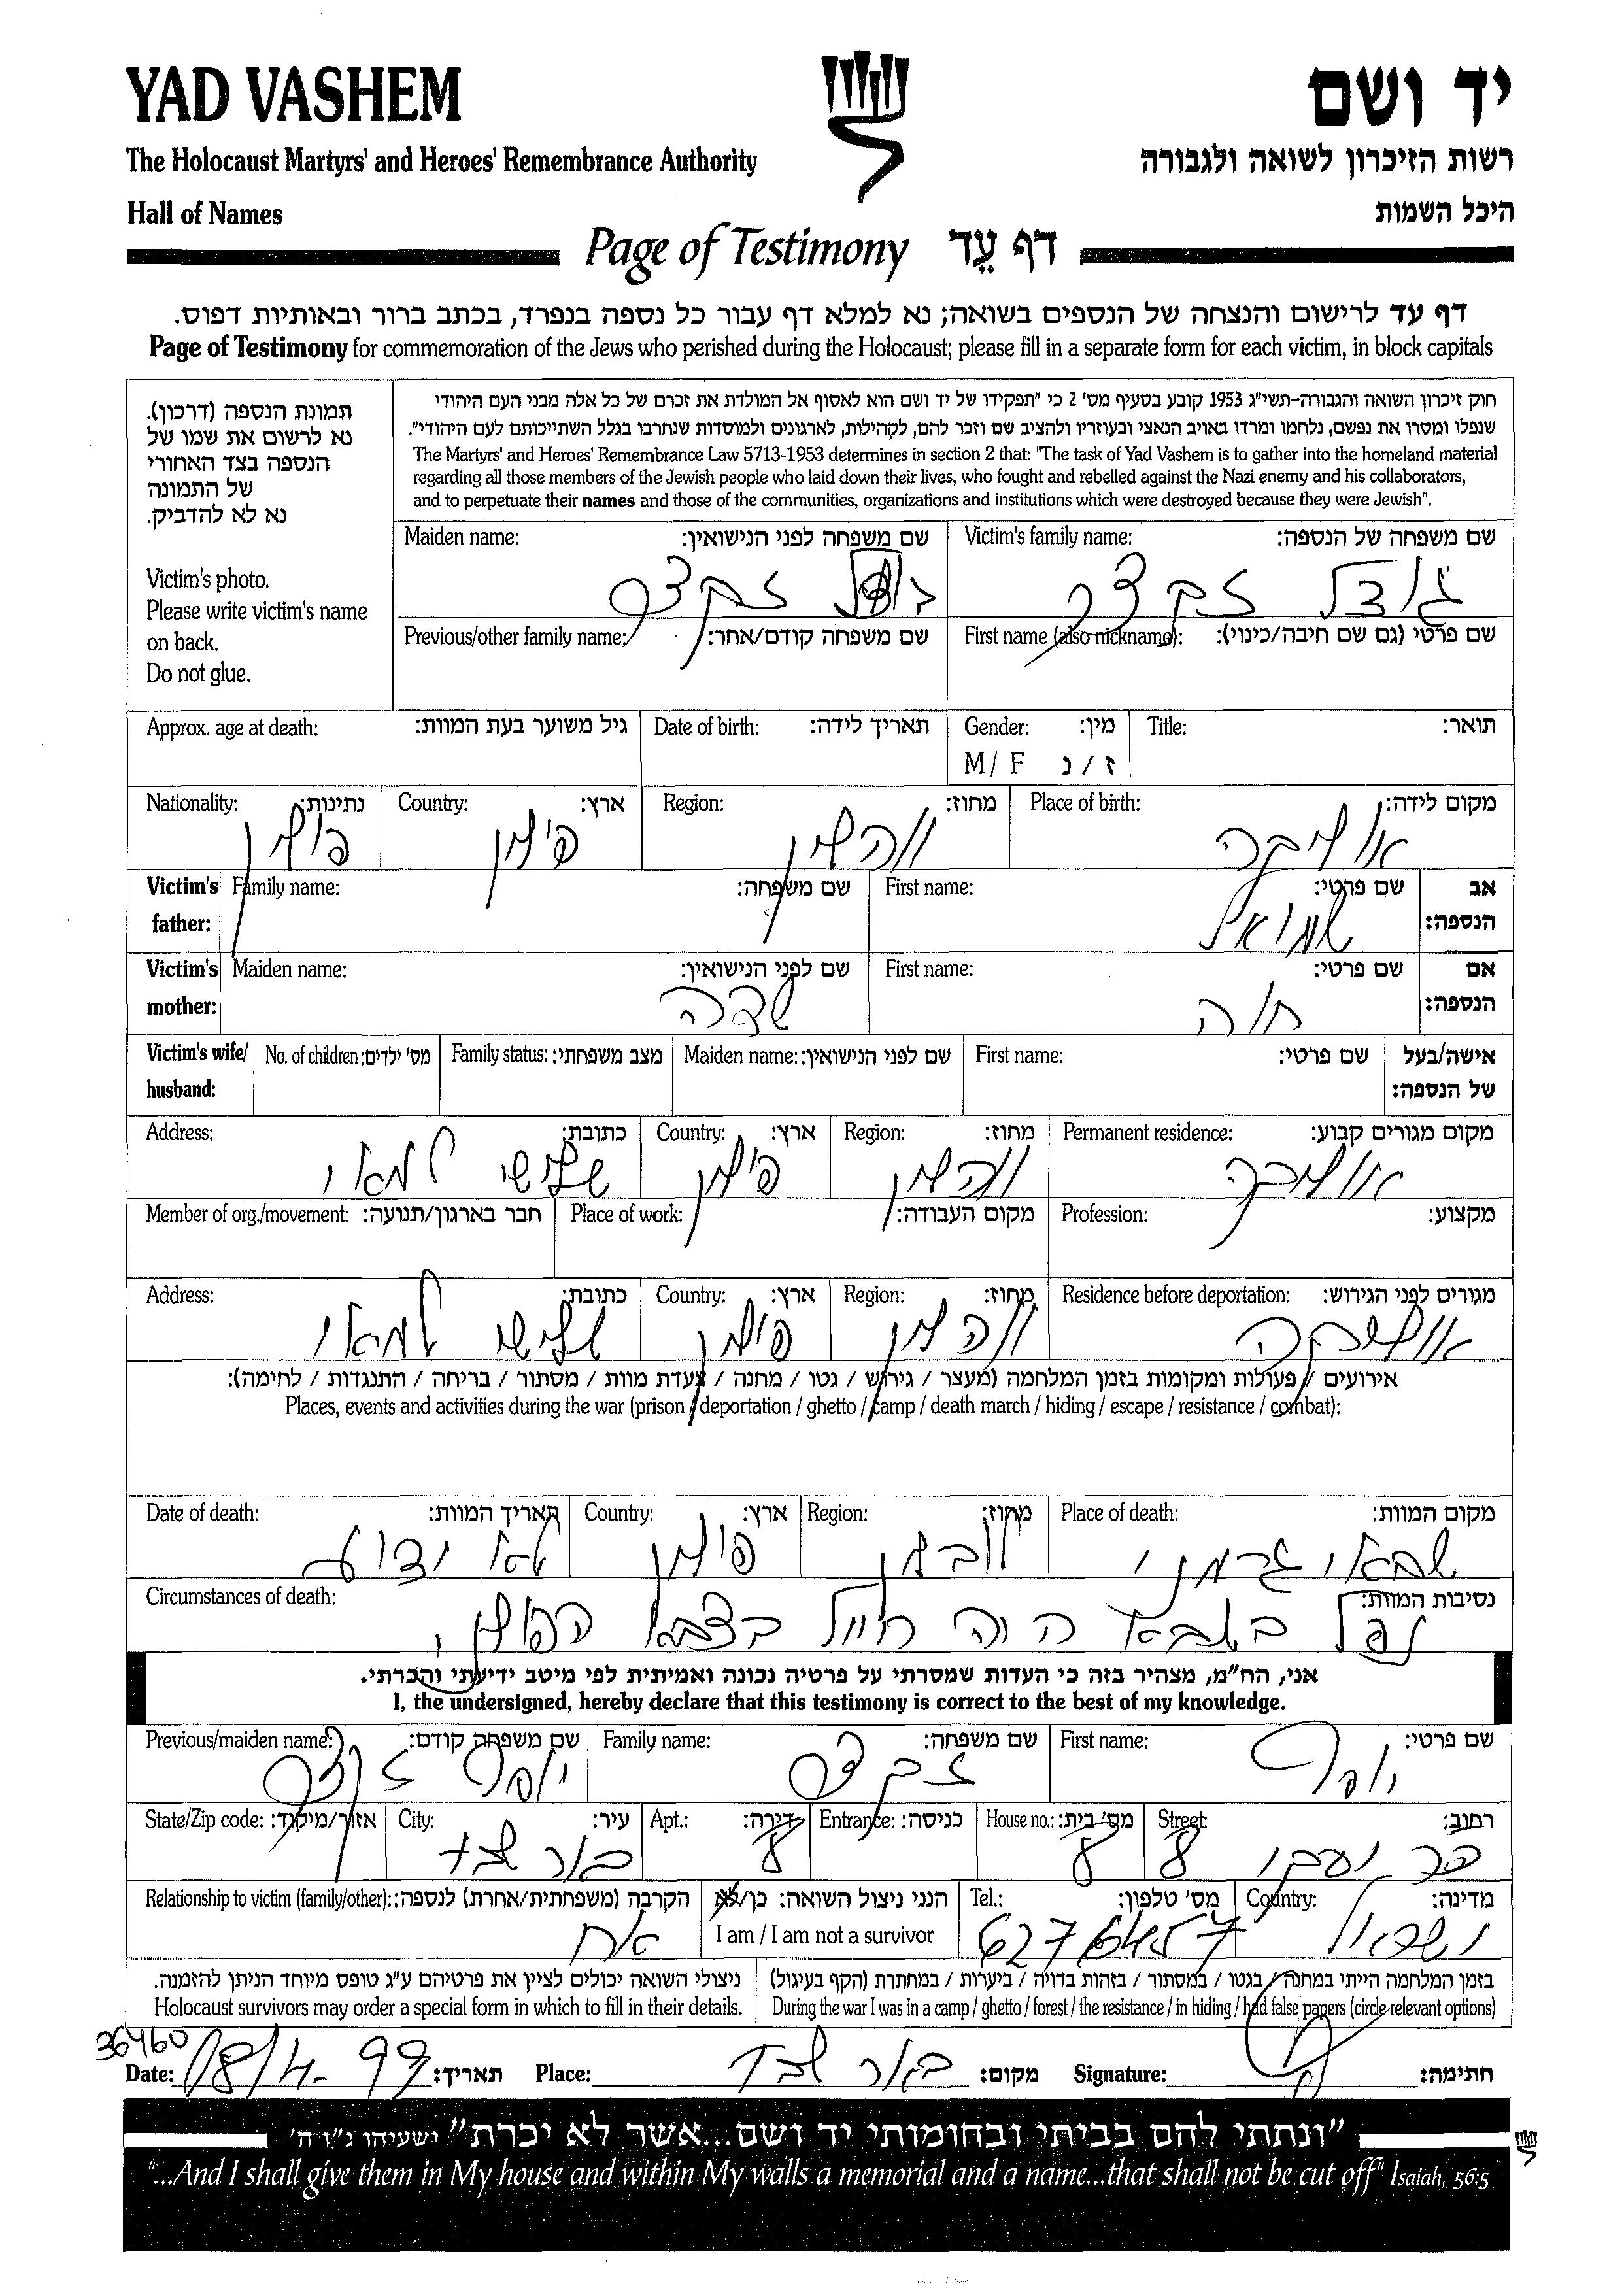 YAD VASHEM
יד ושם
The Holocaust Martyrs' and Heroes' Remembrance Authority
רשות הזיכרון לשואה ולגבורה
Hall of Names
היכל השמות
Page of Testimony דף עֵד
דף עד לרישום והנצחה של הנספים בשואה; נא למלא דף עבור כל נספה בנפרד, בכתב ברור ובאותיות דפוס.
Page of Testimony for commemoration of the Jews who perished during the Holocaust; please fill in a separate form for each victim, in block capitals
תמונת הנספה (דרכון).
נא לרשום את שמו של
הנספה בצד האחורי
של התמונה
נא לא להדביק.
Victim's photo.
Please write victim's name
on back.
Do not glue.
חוק זיכרון השואה והגבורה-תשי"ג 1953 קובע בסעיף מס' 2 כי "תפקידו של יד ושם הוא לאסוף אל המולדת את זכרם של כל אלה מבני העם היהודי
שנפלו ומסרו את נפשם, נלחמו ומרדו באויב הנאצי ובעוזריו ולהציב שם וזכר להם, לקהילות, לארגונים ולמוסדות שנחרבו בגלל השתייכותם לעם היהודי".
The Martyrs' and Heroes' Remembrance Law 5713-1953 determines in section 2 that: "The task of Yad Vashem is to gather into the homeland material
regarding all those members of the Jewish people who laid down their lives, who fought and rebelled against the Nazi enemy and his collaborators,
and to perpetuate their names and those of the communities, organizations and institutions which were destroyed because they were Jewish".
Victim's family name: שם משפחה של הנספה:
Maiden name: שם משפחה לפני הנישואין:
First name (also nickname): שם פרטי (גם שם חיבה/כינוי):
Previous/other family name: שם משפחה קודם/אחר:
Title: תואר:
Gender: מין:
M/ F ז / נ
Date of birth: תאריך לידה:
Approx. age at death: גיל משוער בעת המוות:
Place of birth: מקום לידה:
Region: מחוז:
Country: ארץ: פולין
Nationality: נתינות: פולין
Victim's father: אב הנספה:
First name: שם פרטי: שמואל
Family name: שם משפחה:
Victim's mother: אם הנספה:
First name: שם פרטי: חוה
Maiden name: שם לפני הנישואין:
Victim's wife/ husband: אישה/בעל של הנספה:
First name: שם פרטי:
Maiden name: שם לפני הנישואין:
Family status: מצב משפחתי:
No. of children: מס' ילדים:
Permanent residence: מקום מגורים קבוע:
Region: מחוז:
Country: ארץ: פולין
Address: כתובת: שלישי למאי
Profession: מקצוע:
Place of work: מקום העבודה:
Member of org./movement: חבר בארגון/תנועה:
Residence before deportation: מגורים לפני הגירוש:
Region: מחוז:
Country: ארץ: פולין
Address: כתובת: שלישי למאי
אירועים / פעולות ומקומות בזמן המלחמה (מעצר / גירוש / גטו / מחנה / צעדת מוות / מסתור / בריחה / התנגדות / לחימה):
Places, events and activities during the war (prison / deportation / ghetto / camp / death march / hiding / escape / resistance / combat):
Place of death: מקום המוות:
Region: מחוז: לובלין
Country: ארץ: פולין
Date of death: תאריך המוות: לא ידוע
Circumstances of death: נסיבות המוות:
נפל בצבא היה חייל בצבא הפולני
אני, הח"מ, מצהיר בזה כי העדות שמסרתי על פרטיה נכונה ואמיתית לפי מיטב ידיעתי והכרתי.
I, the undersigned, hereby declare that this testimony is correct to the best of my knowledge.
First name: שם פרטי: יוסף
Family name: שם משפחה:
Previous/maiden name: שם משפחה קודם: יוסף
Street: רחוב:
House no.: מס' בית: 8
Entrance: כניסה:
Apt.: דירה: 8
City: עיר: באר שבע
State/Zip code: אזור/מיקוד:
Country: מדינה: ישראל
Tel.: מס' טלפון: 6276457
הנני ניצול השואה: כן/לא
I am / I am not a survivor
Relationship to victim (family/other): הקרבה (משפחתית/אחרת) לנספה: אח
בזמן המלחמה הייתי במחנה / בגטו / במסתור / בזהות בדויה / ביערות / במחתרת (הקף בעיגול)
During the war I was in a camp / ghetto / forest / the resistance / in hiding / had false papers (circle relevant options)
ניצולי השואה יכולים לציין את פרטיהם ע"ג טופס מיוחד הניתן להזמנה.
Holocaust survivors may order a special form in which to fill in their details.
36460
Date: 18/4-99 תאריך: Place: באר שבע מקום: Signature: חתימה:
"ונתתי להם בביתי ובחומותי יד ושם...אשר לא יכרת" ישעיהו נ"ו ה'
"...And I shall give them in My house and within My walls a memorial and a name...that shall not be cut off" Isaiah, 56:5